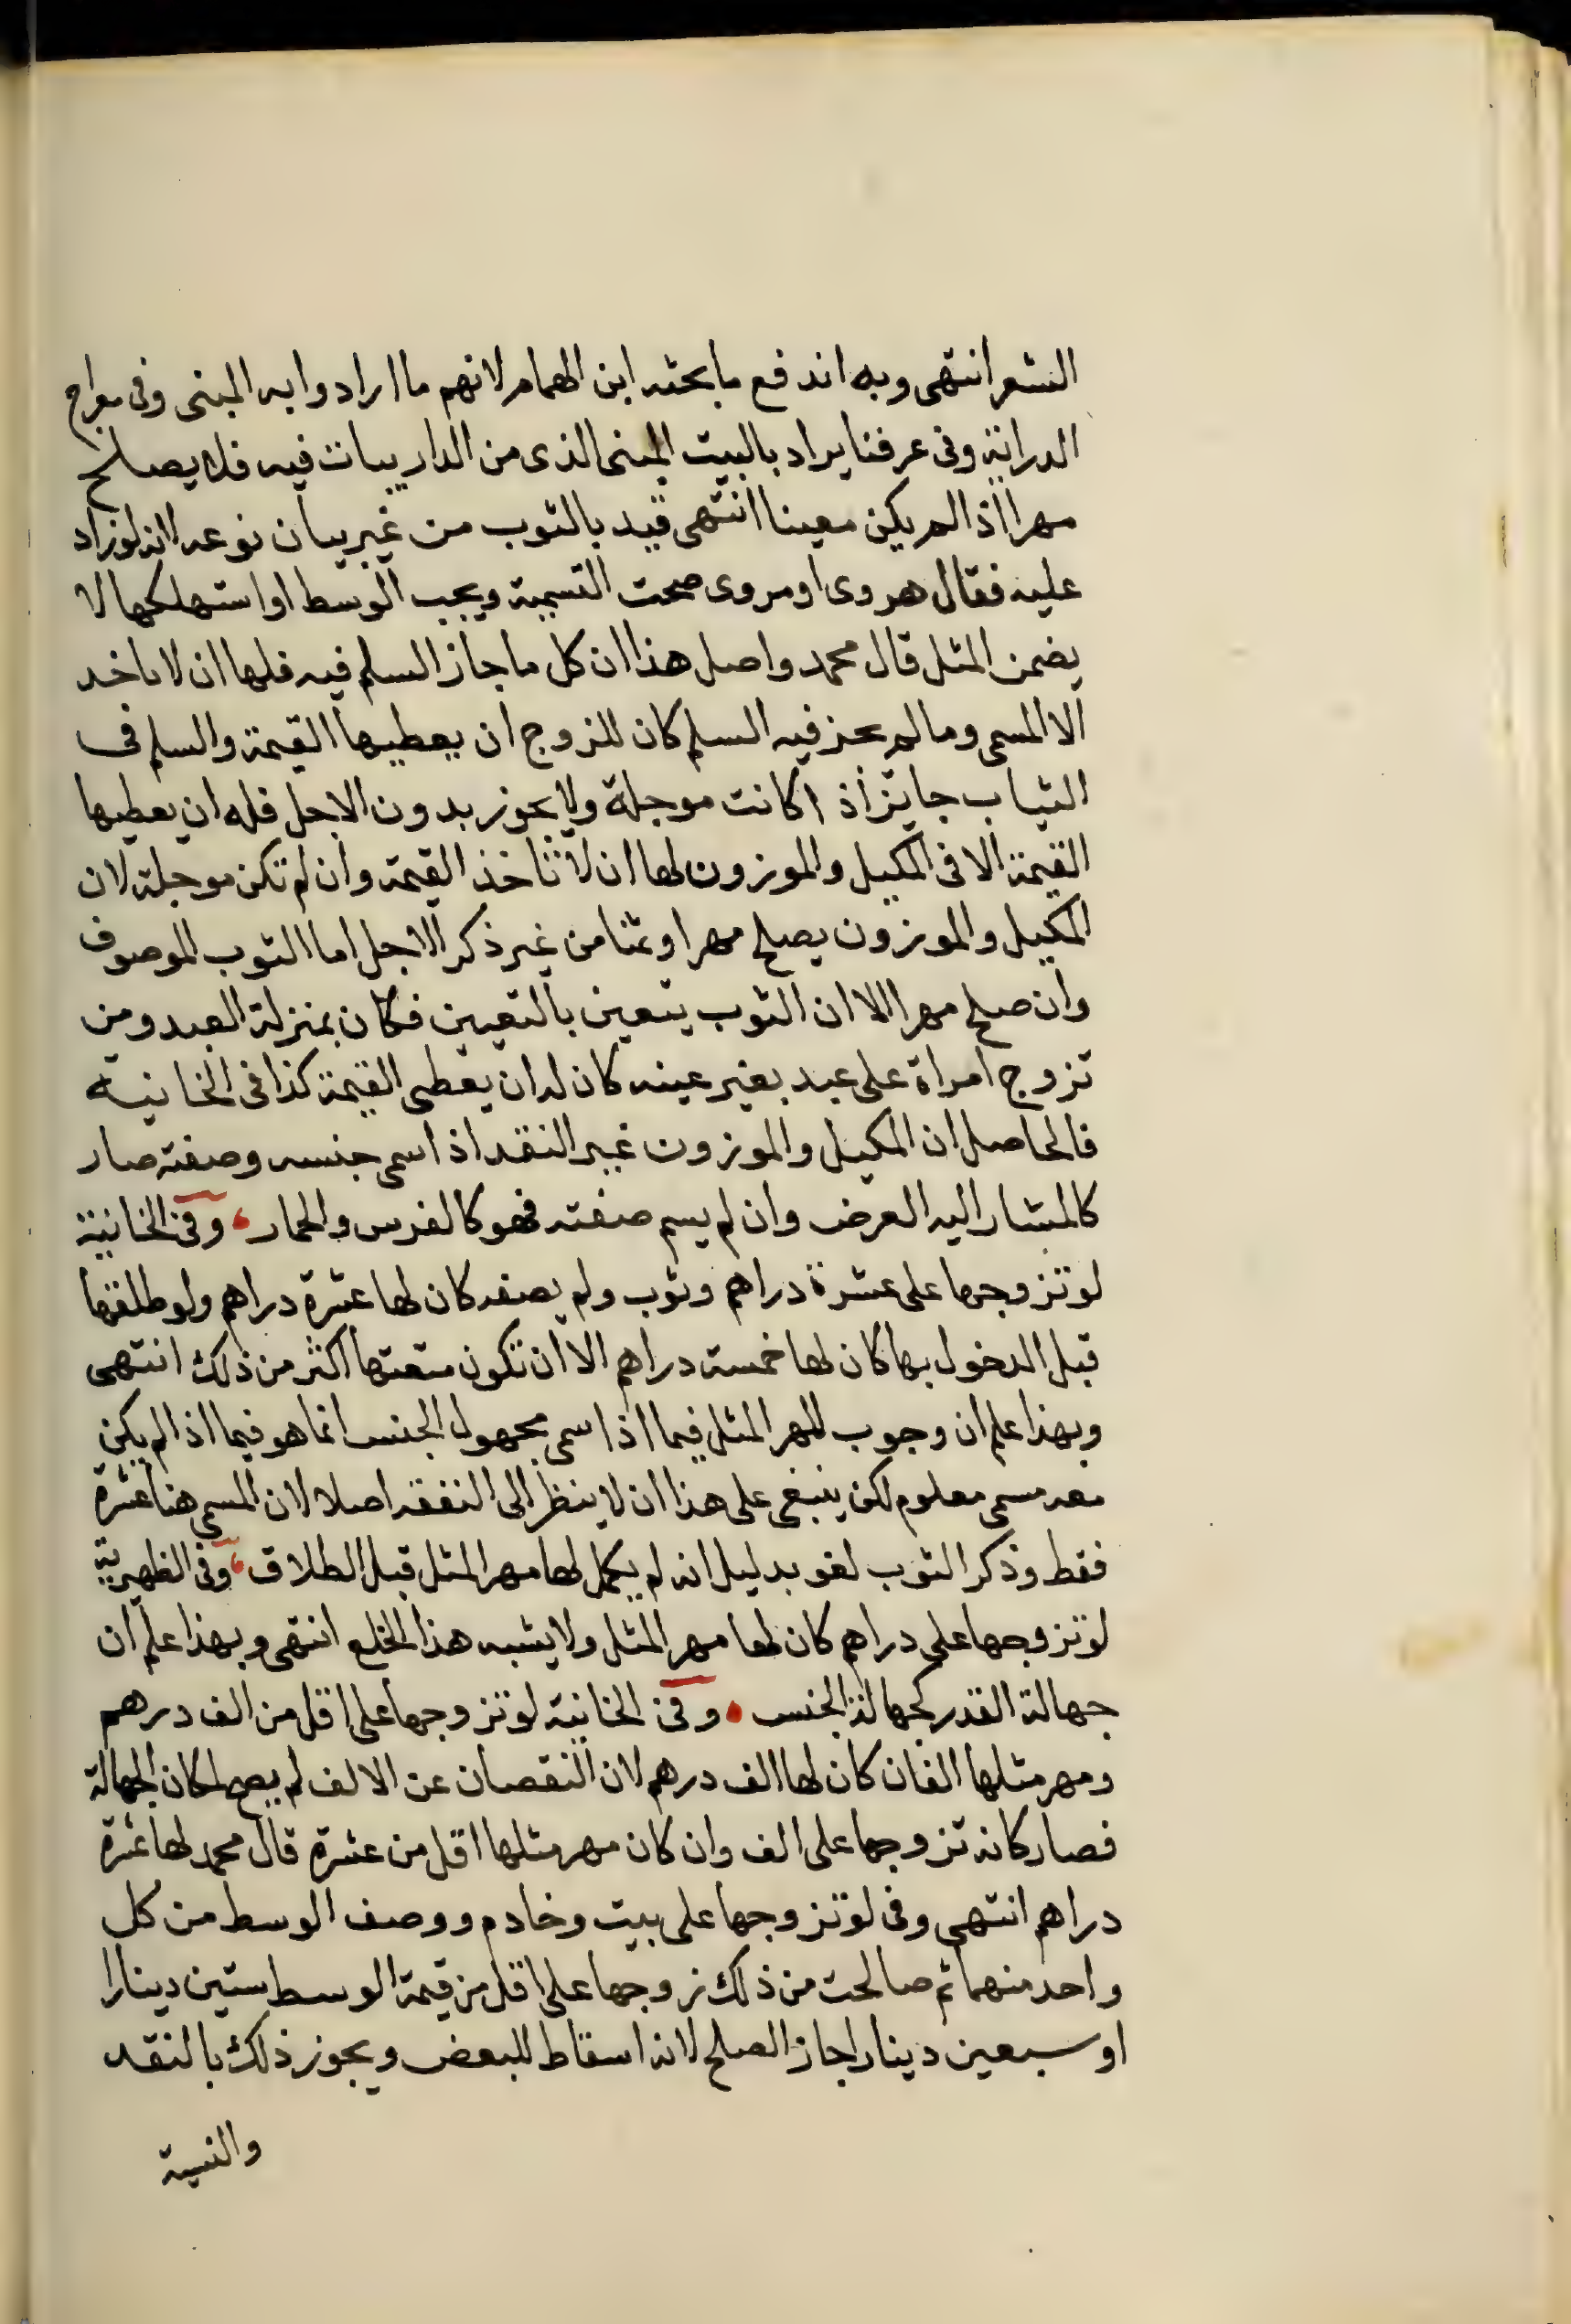 الشعر انتهى وبه اندفع ما بحثه ابن الهمام لانهم ما ارادوا به المبنى وفى معراج
الدراية وفى عرفنا يراد بالبيت المبنى الذى من الدار يبات فيه فلا يصلح
مهرا اذا لم يكن معينا انتهى قيد بالثوب من غير بيان نوعه لانه لو زاد
عليه فقال هروى او مروى صحت التسمية ويجب الوسط او استهلكها لا
يضمن المثل قال محمد واصل هذا ان كل ما جاز السلم فيه فلها ان لا تاخد
الا المسمى وما لم يجز فيه السلم كان للزوج ان يعطيها القيمة والسلم فى
الثياب جايز اذا كانت موجلة ولا يجوز بدون الاجل فله ان يعطيها
القيمة الا فى المكيل والموزون لها ان لا تاخذ القيمة وان لم تكن موجلة لان
المكيل والموزون يصلح مهرا وثمنا من غير ذكر الاجل اما الثوب الموصوف
وان صلح مهرا الا ان الثوب يتعين بالتعيين فكان بمنزلة العبد ومن
تزوج امراة على عبد بغير عينه كان له ان يعطى القيمة كذا فى الخانية
فالحاصل ان المكيل والموزون غير النقد اذا سمى جنسه وصفته صار
كالمشار اليه العرض وان لم يسم صفته فهو كالفرس والحمار وفى الخانية
لو تزوجها على عشرة دراهم وثوب ولم يصفه كان لها عشرة دراهم ولو طلقها
قبل الدخول بها كان لها خمسة دراهم الا ان تكون متعتها اكثر من ذلك انتهى
وبهذا علم ان وجوب المهر المثل فيما اذا سمى مجهول الجنس انما هو فيما اذا لم يكن
معه مسمى معلوم لكن ينبغى على هذا ان لا ينظر الى النفقه اصلا لان المسمى هنا عشرة
فقط وذكر الثوب لغو بدليل انه لم يكمل لها مهر المثل قبل الطلاق وفى الظهيرية
لو تزوجها على دراهم كان لها مهر المثل ولا يشبه هذا الخلع انتهى وبهذا علم ان
جهالة القدر كجهالة الجنس وفى الخانية لو تزوجها على اقل من الف درهم
ومهر مثلها الفان كان لها الف درهم لان النقصان عن الالف لم يصح لمكان الجهالة
فصار كانه تزوجها على الف وان كان مهر مثلها اقل من عشرة قال محمد لها عشرة
دراهم انتهى وفى لو تزوجها على بيت وخادم ووصف الوسط من كل
واحد منهما ثم صالحت من ذلك زوجها على اقل من قيمة الوسط ستين دينارا
او سبعين دينارا جاز الصلح لانه اسقاط للبعض ويجوز ذلك بالنقد
والنسية